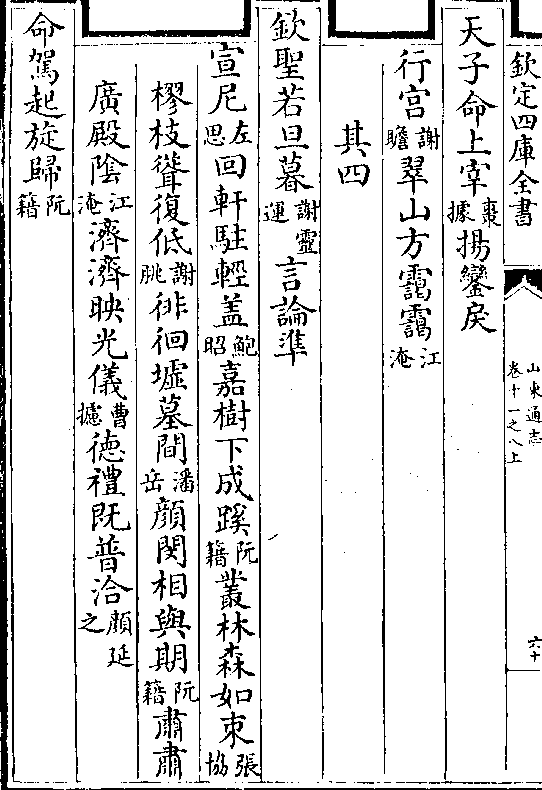 欽定四庫全書
山東通志
卷十一之八上
六十
天子命上宰棗據揚鑾戾
行宫謝瞻翠山方靄靄江淹
其四
欽聖若旦暮謝靈運言論準
宣尼左思回軒駐輕盖鮑昭嘉樹下成蹊阮籍叢林森如束張協
樛枝聳復低謝朓徘徊墟墓間潘岳顔閔相與期阮籍肅肅
廣殿陰江淹濟濟映光儀曹攄德禮既普洽顔延之
命駕起旋歸阮籍